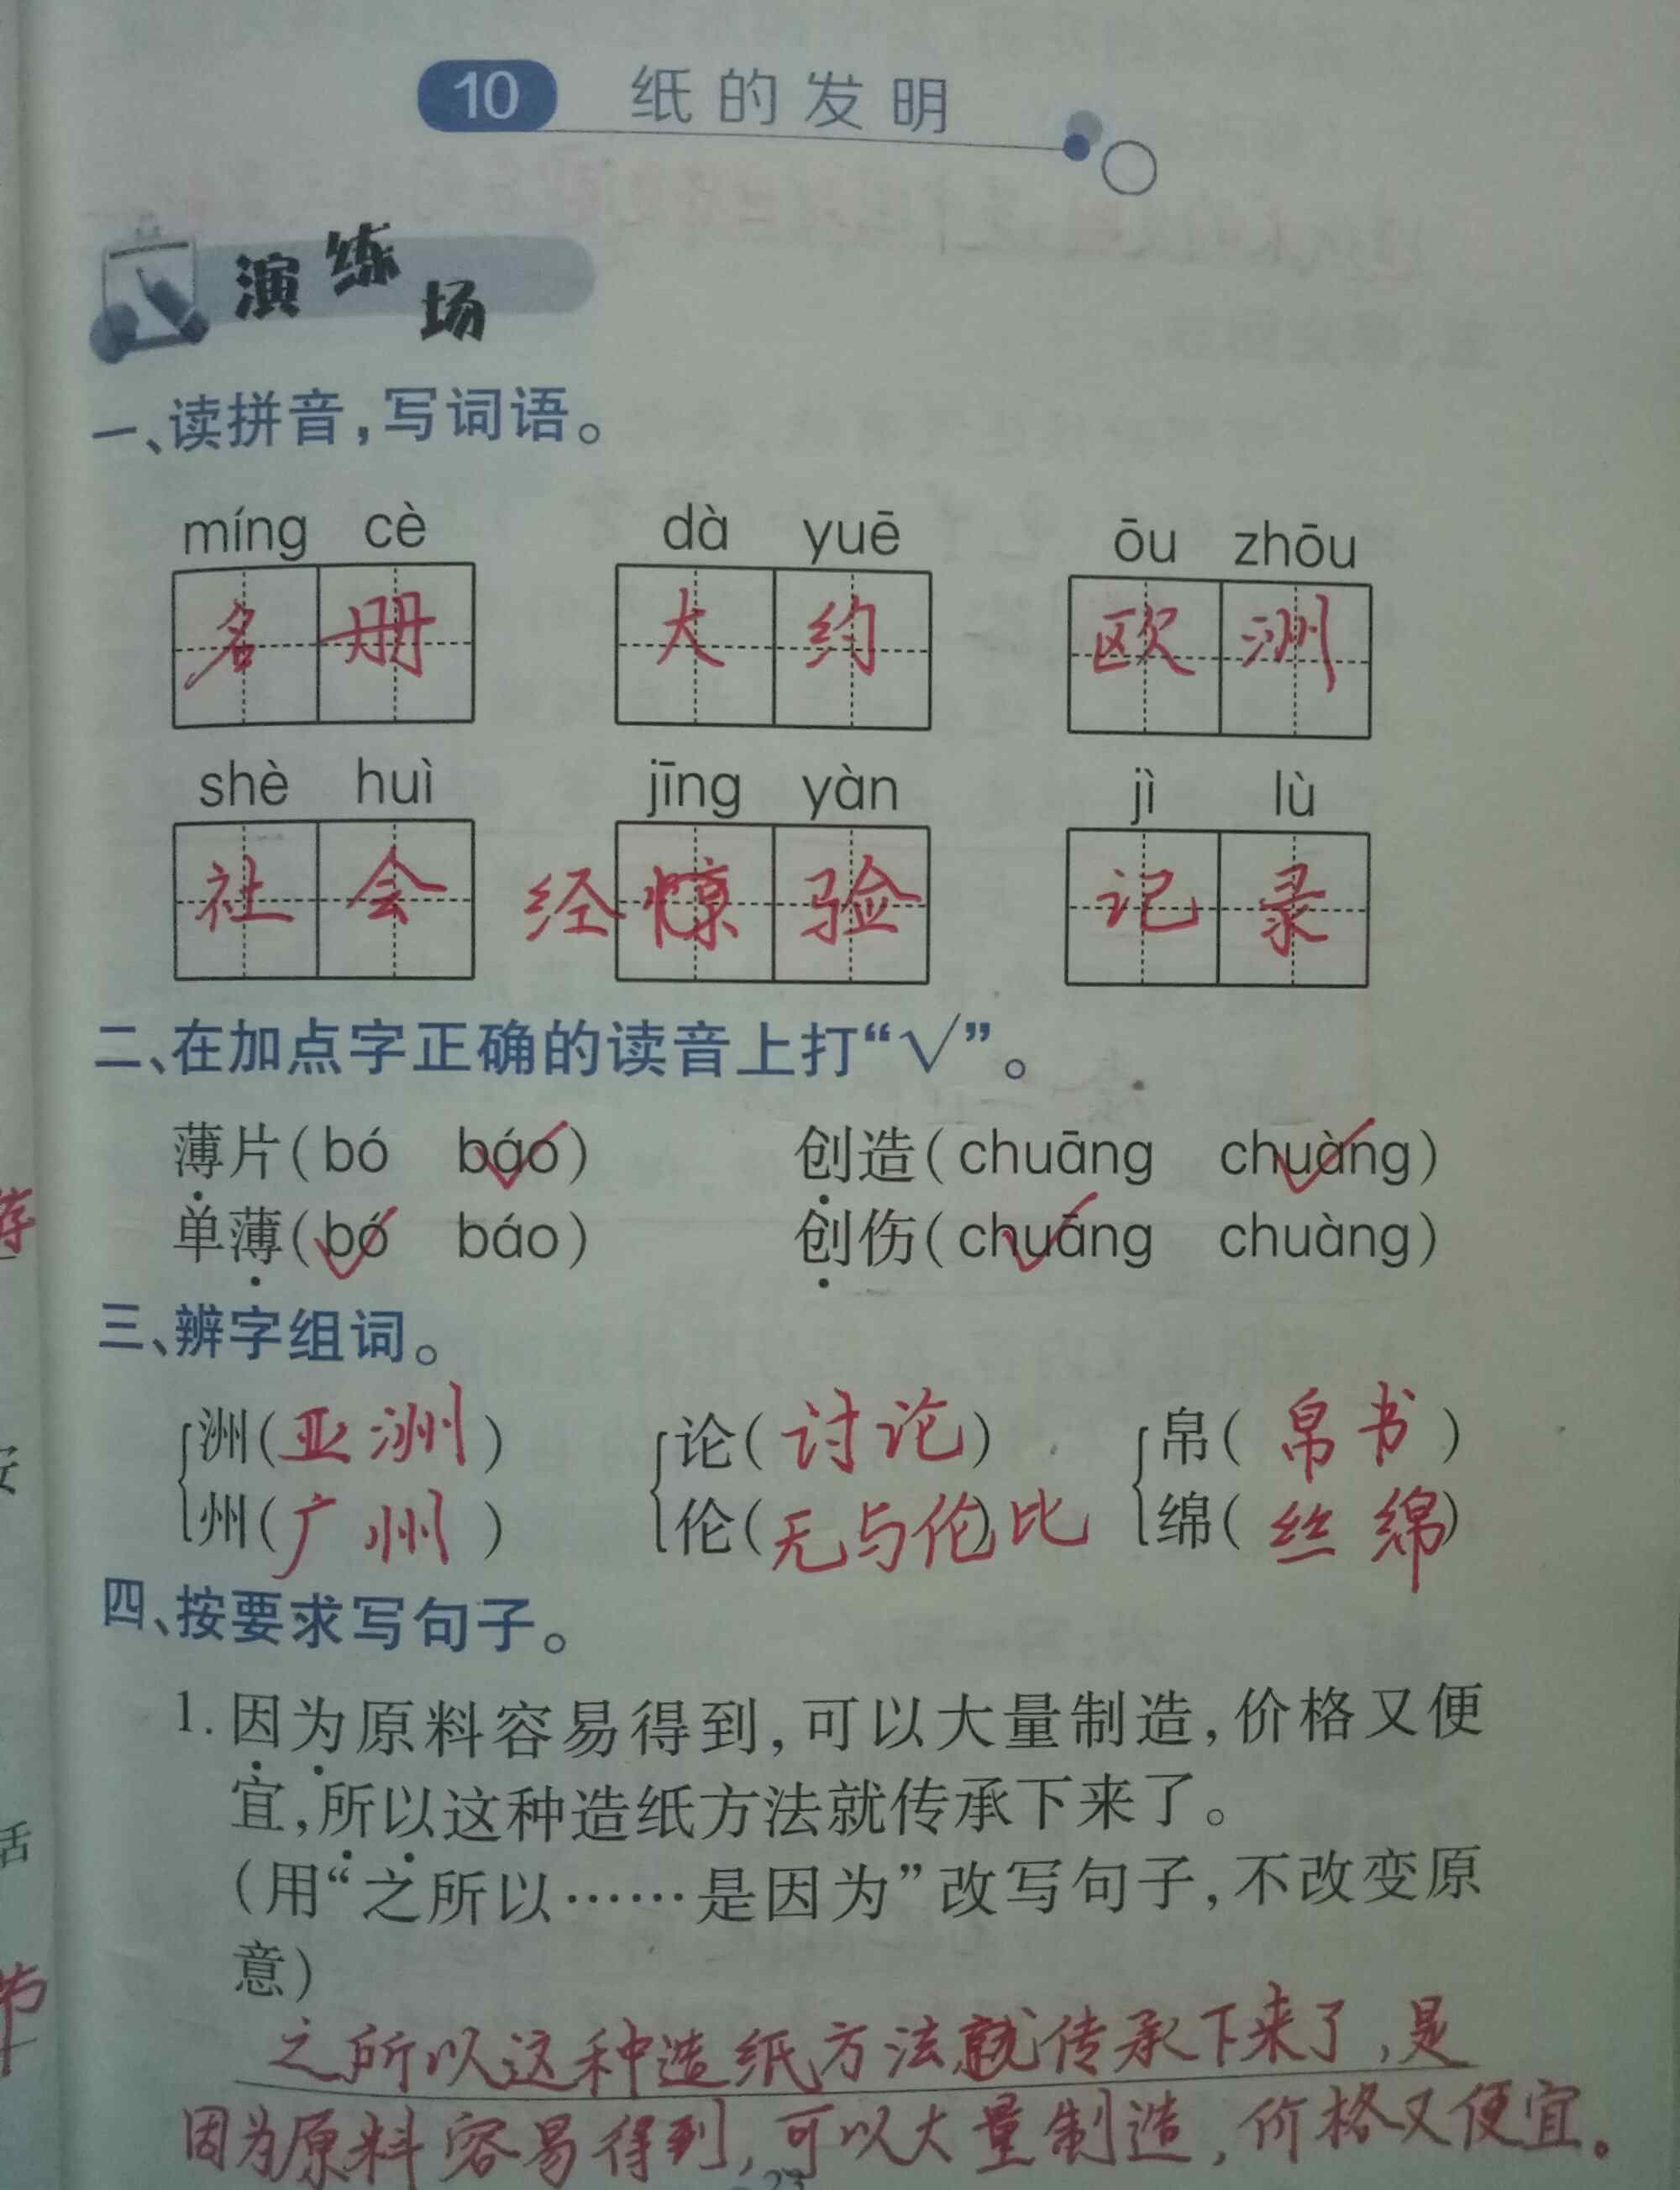 10 纸的发明
演练场
一、读拼音,写词语。
míng cè dà yuē ōu zhōu
名册 大约 欧洲
shè huì jīng yàn jì lù
社会 经惊验 记录
二、在加点字正确的读音上打“√”。
薄片(bó báo) 创造(chuāng chuàng)
单薄(bó báo) 创伤(chuāng chuàng)
三、辨字组词。
洲(亚洲) 论(讨论) 帛(帛书)
州(广州) 伦(无与伦比) 绵(丝绵)
四、按要求写句子。
1.因为原料容易得到,可以大量制造,价格又便
宜,所以这种造纸方法就传承下来了。
(用“之所以……是因为”改写句子,不改变原
意)
之所以这种造纸方法就传承下来了,是
因为原料容易得到,可以大量制造,价格又便宜。
23